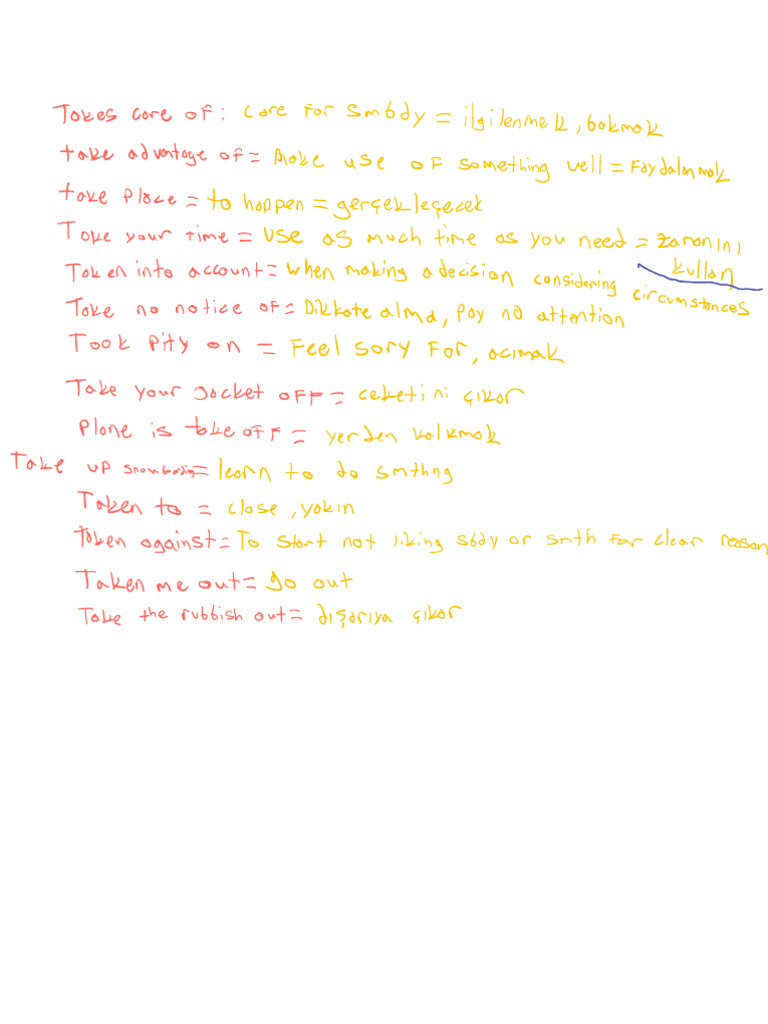 Takes care of: care for smbdy = ilgilenmek, bakmak
take advantage of = Make use of something well = Faydalanmak
take place = to happen = gerçekleşecek
Take your time = use as much time as you need = zamanını
kullan
Taken into account = when making a decision considering circumstances
Take no notice of = Dikkate alma, Pay no attention
Took pity on = Feel sory for, acımak
Take your jacket off = ceketini çıkar
Plane is take off = yerden kalkmak
Take up snowbordin = learn to do smthng
Taken to = close, yakın
Taken against = To start not liking sbdy or smth for clear reason
Taken me out = go out
Take the rubbish out = dışarıya çıkar